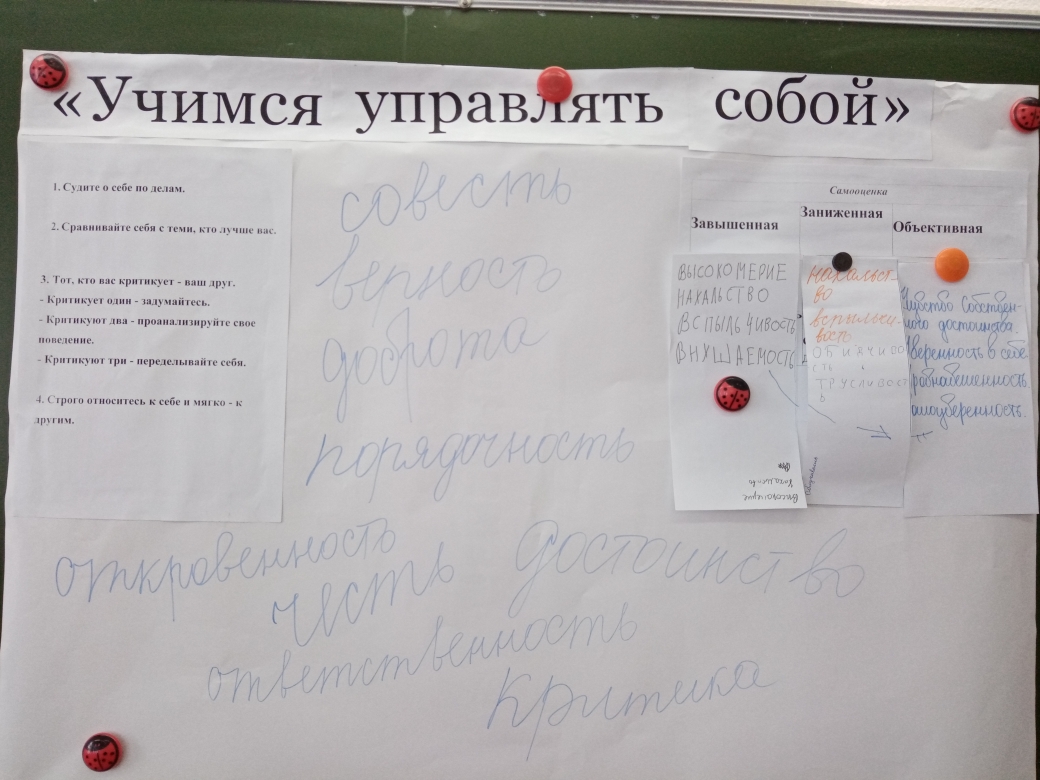 «Учимся управлять собой»
1. Судите о себе по делам.
2. Сравнивайте себя с теми, кто лучше вас.
3. Тот, кто вас критикует - ваш друг.
- Критикует один - задумайтесь.
- Критикуют два - проанализируйте свое
поведение.
- Критикуют три - переделывайте себя.
4. Строго относитесь к себе и мягко - к
другим.
совесть
верность
доброта
порядочность
откровенность
честь
достоинство
ответственность
критика
Самооценка
Завышенная
Заниженная
Объективная
ВЫСОКОМЕРИЕ
НАХАЛЬСТВО
ВСПЫЛЬЧИВОСТЬ
ВНУШАЕМОСТЬ
Высокомерие
нахальст-
во
вспыльчи-
вость
ТРУСЛИВОСТ
Ь
чувство собствен-
ного достоинства.
уверенность в себе